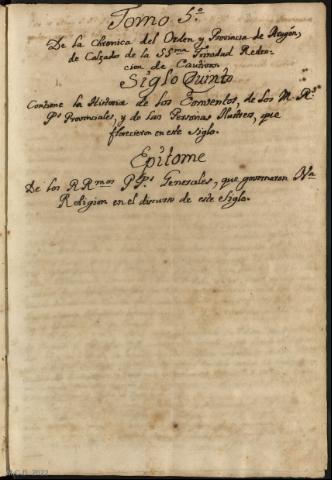 Tomo 5.º
De la Chronica del Orden y Provincia de Aragon,
de Calzados de la SS.ma Trinidad Reden-
cion de Cautivos.
Siglo Quinto
Contiene la Historia de los Conventos, de los M. R.s
P.s Provinciales, y de las Personas Ilustres, que
florecieron en este siglo.
Epitome
De los RR.mos P.P.s Generales, que governaron N.a
Religion en el discurso de este siglo.